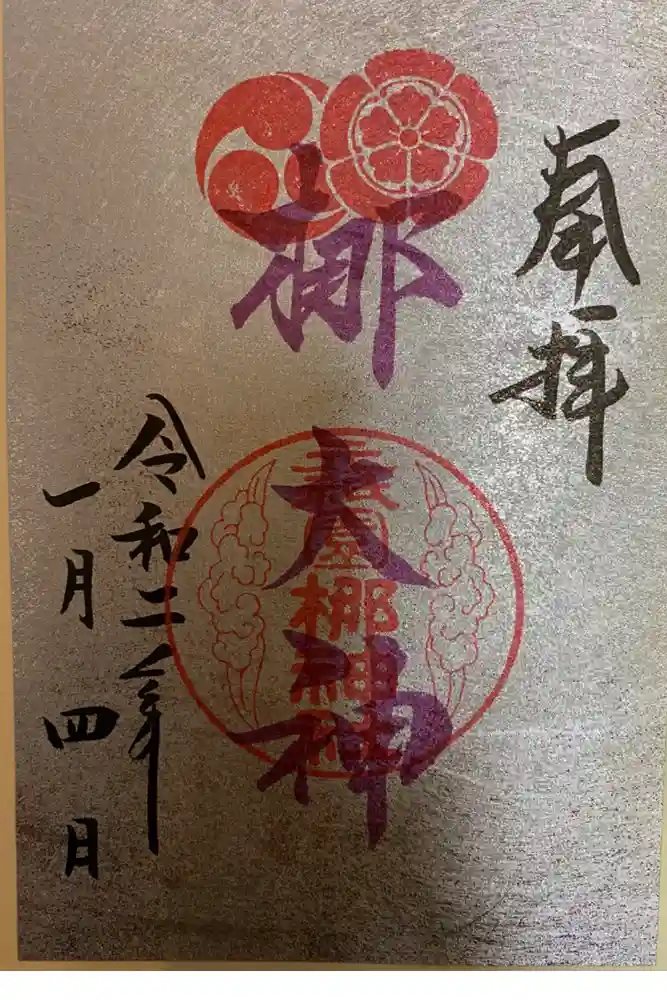 奉拝
梛大神
梛神社
令和二年
一月四日